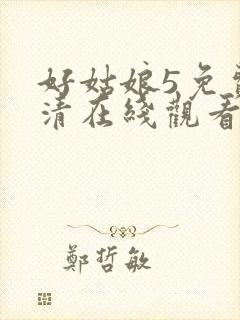 好姑娘5免費
清在綫觀看
鄭哲敏